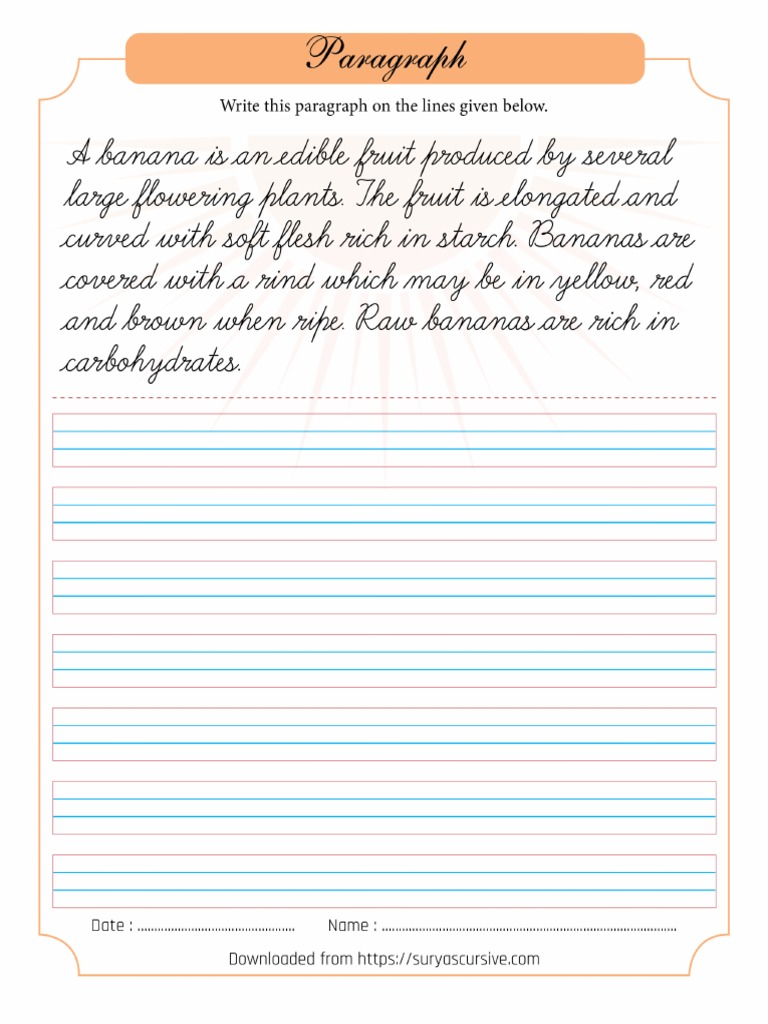 Paragraph
Write this paragraph on the lines given below.
A banana is an edible fruit produced by several
large flowering plants. The fruit is elongated and
curved with soft flesh rich in starch. Bananas are
covered with a rind which may be in yellow, red
and brown when ripe. Raw bananas are rich in
carbohydrates.
Date : ............................................... Name : ........................................................................................
Downloaded from https://suryascursive.com